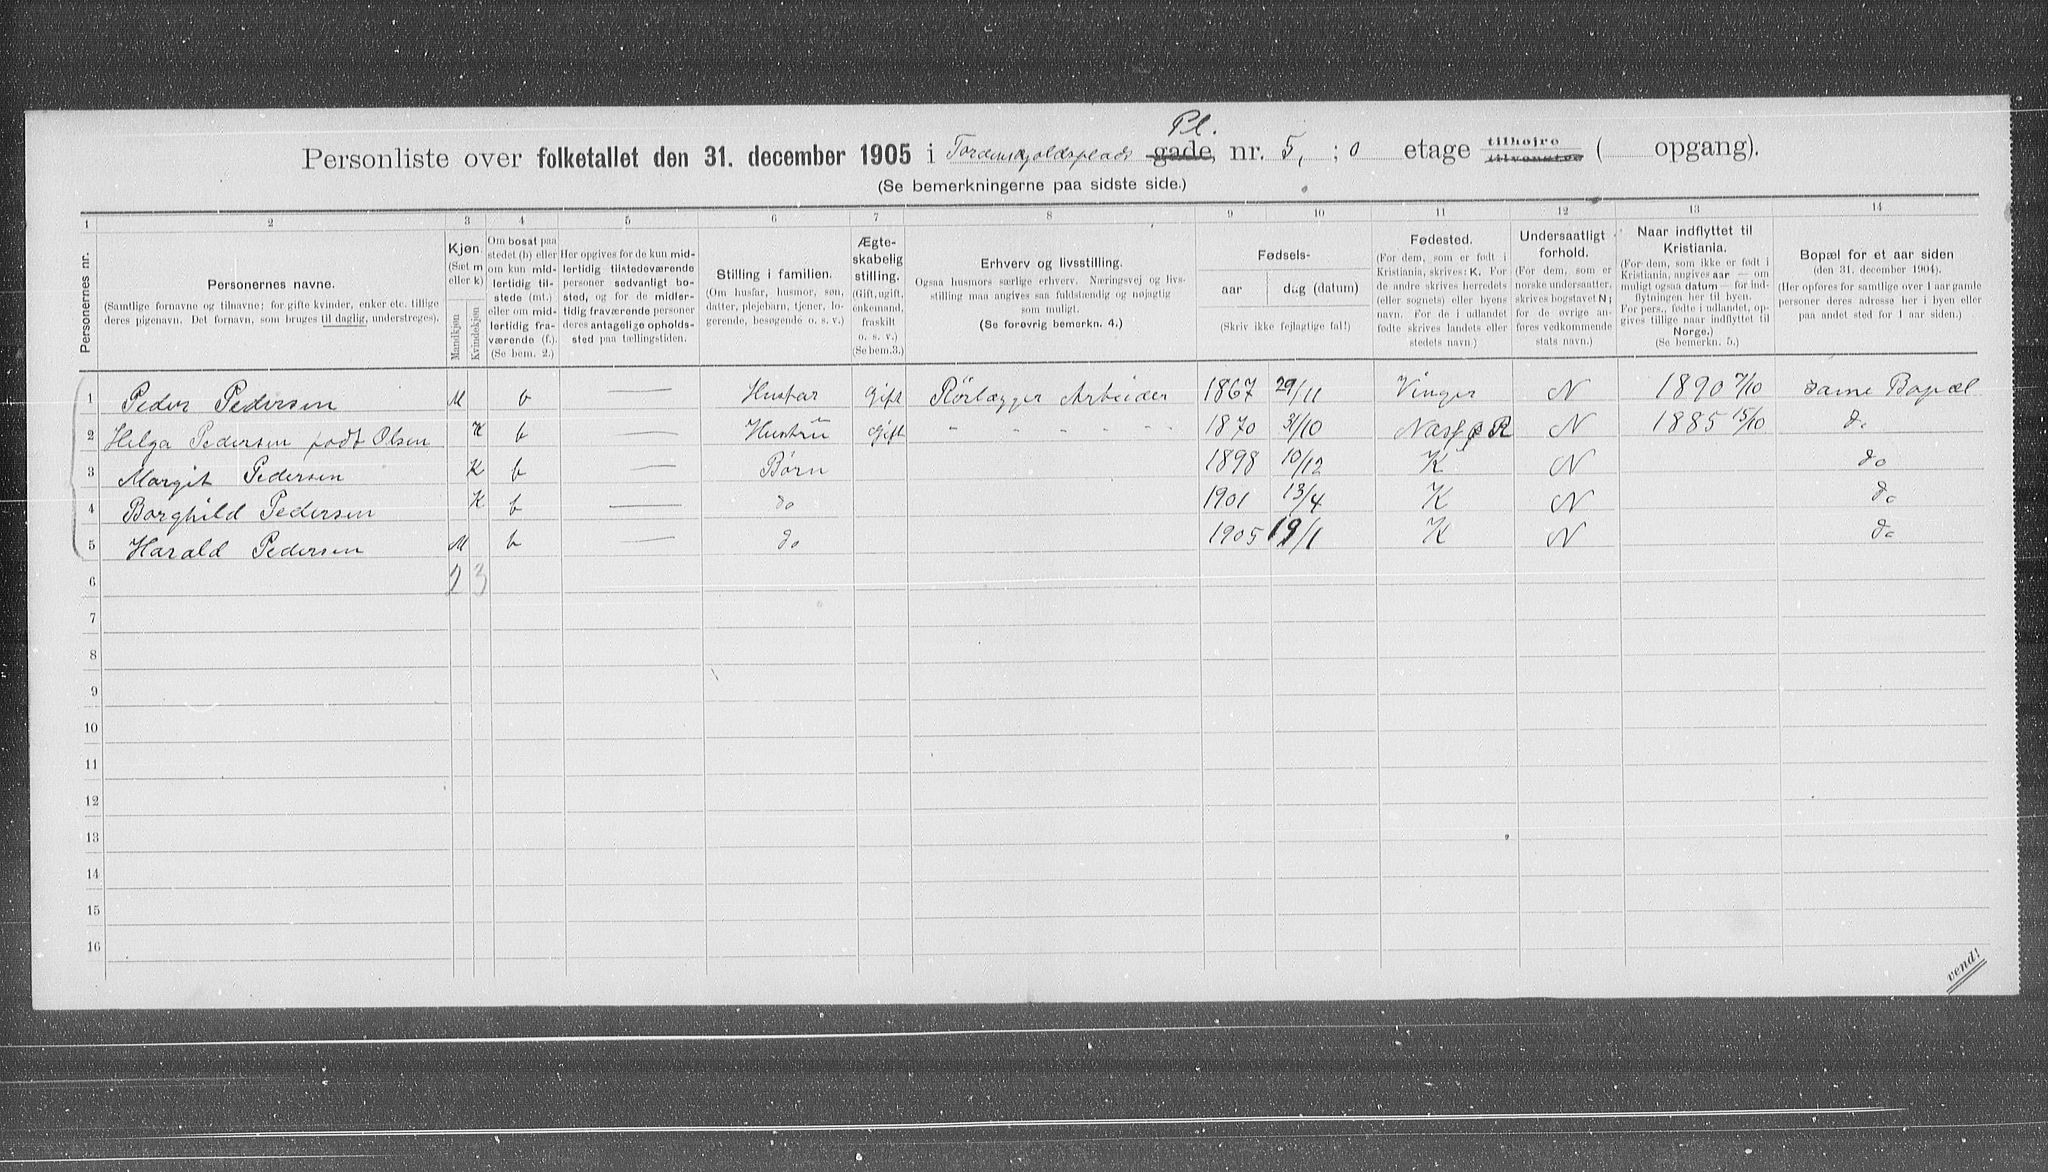 Pl.
Personliste over folketallet den 31. december 1905 i Tordenskjoldsplads gade, nr. 5, ; 0 etage tilhøjre tilvenstre ( opgang).
(Se bemerkningerne paa sidste side.)
1 2 3 4 5 6 7 8 9 10 11 12 13 14
Personernes nr.
Personernes navne.
(Samtlige fornavne og tilnavne; for gifte kvinder, enker etc. tillige
deres pigenavn. Det fornavn, som bruges til daglig, understreges).
Kjøn.
(Sæt m
eller k)
Mandkjøn
Kvindekjøn
Om bosat paa
stedet (b) eller
om kun mid-
lertidig til-
stede (mt.)
eller om mid-
lertidig fra-
værende (f.).
(Se bem. 2.)
Her opgives for de kun mid-
lertidig tilstedeværende
personer sedvanligt bo-
sted, og for de midler-
tidig fraværende personer
deres antagelige opholds-
sted paa tællingstiden.
Stilling i familien.
(Om husfar, husmor, søn,
datter, plejebarn, tjener, lo-
gerende, besøgende o. s. v.)
Ægte-
skabelig
stilling.
(Gift, ugift,
enkemand,
fraskilt
o. s. v.)
(Se bem.3.)
Erhverv og livsstilling.
Ogsaa husmors særlige erhverv. Næringsvej og livs-
stilling maa angives saa fuldstændig og nøjagtig
som muligt.
(Se forøvrig bemerkn. 4.)
Fødsels-
aar dag (datum)
(Skriv ikke fejlagtige tal!)
Fødested.
(For dem, som er født i
Kristiania, skrives: K. For
de andre skrives herredets
(eller sognets) eller byens
navn. For de i udlandet
fødte skrives landets eller
stedets navn.)
Undersaatligt
forhold.
(For dem, som er
norske undersaatter,
skrives bogstavet N;
for de øvrige an-
føres vedkommende
stats navn.)
Naar indflyttet til
Kristiania.
(For dem, som ikke er født i
Kristiania, angives aar — om
muligt ogsaa datum — for ind-
flytningen her til byen.
For pers., fødte i udlandet, op-
gives tillige naar indflyttet til
Norge.)
(Se bemerkn. 5.)
Bopæl for et aar siden
(den 31. december 1904).
(Her opføres for samtlige over 1 aar gamle
personer deres adresse her i byen eller
paa andet sted for 1 aar siden.)
1 Peder Pedersen M b — Husfar Gift Rörlægger Arbeider 1867 29/11 Vinger N 1890 7/10 samme Bopæl
2 Helga Pedersen født Olsen K b — Hustrü Gift " " " " " 1870 31/10 N 1885 15/10 do
3 Margit Pedersen K b — Børn 1898 10/12 K N do
4 Borghild Pedersen K b — do 1901 13/4 K N do
5 Harald Pedersen M b — do 1905 19/1 K N do
6 2 3
7
8
9
10
11
12
13
14
15
16
vend!